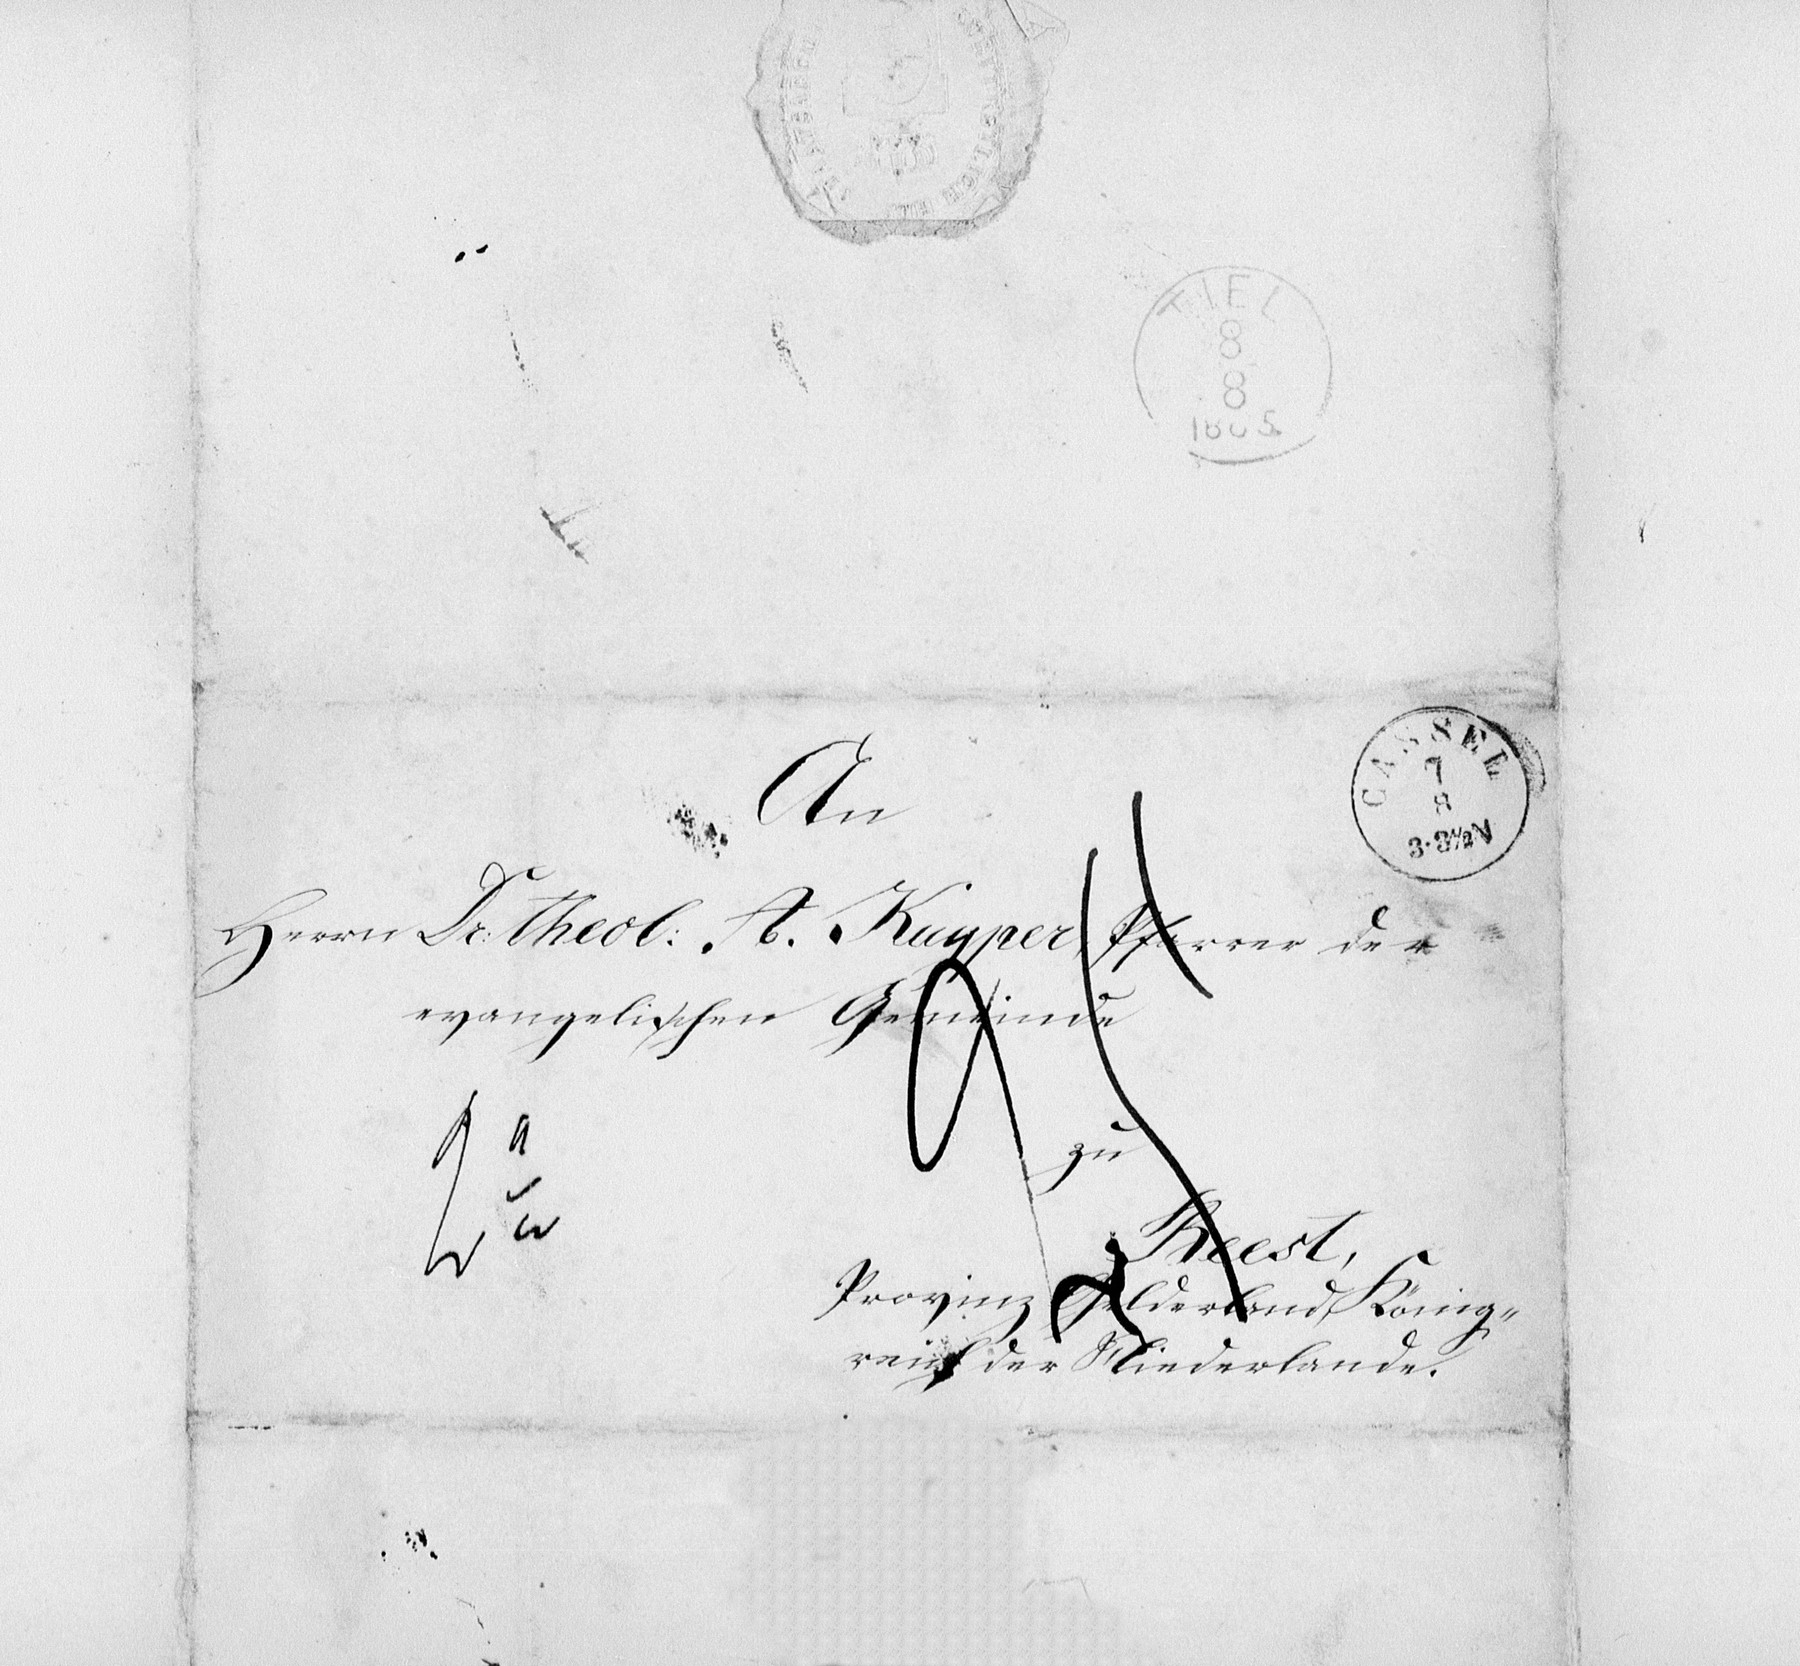 TIEL
8
8
1865
CASSEL
7
8
3-3½N
An
Herrn Dr. theol: A. Kuyper, Pfarrer der
evangelischen Gemeinde
zu
Beest,
Provinz Gelderland, König-
reich der Niederlande.